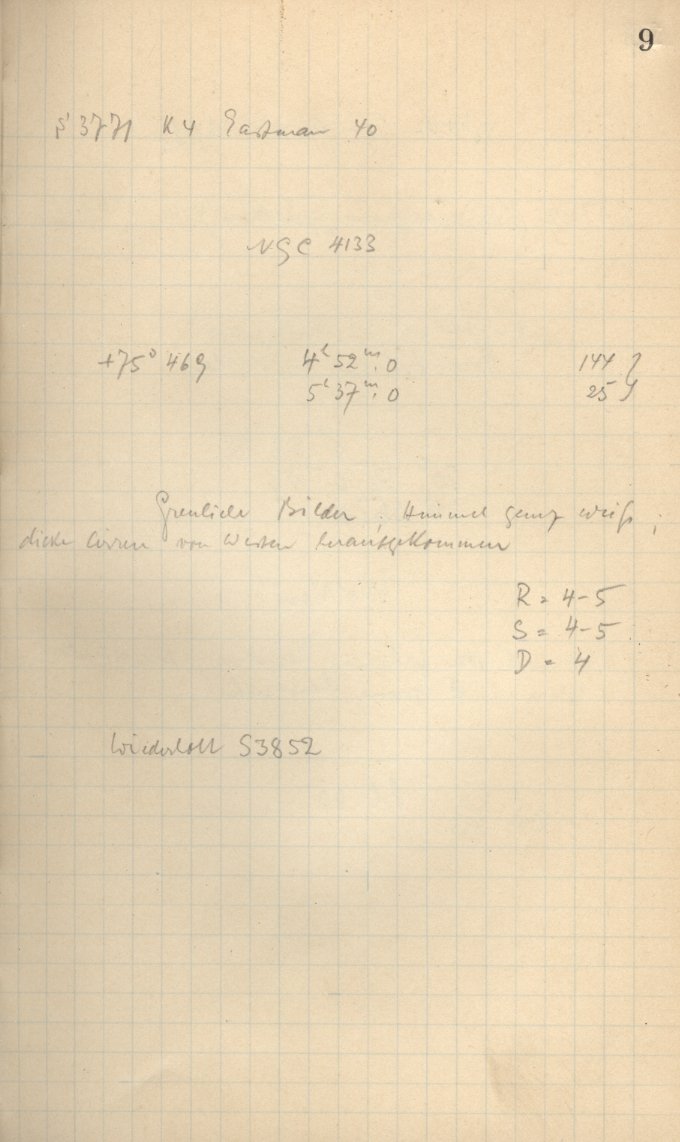 9
S 3771 K4 Eastman 40
NGC 4133
+75° 469 4ʰ52ᵐ.0 144
5ʰ37ᵐ.0 25
Greuliche Bilder, Himmel ganz weiß,
dicke Cirren von Westen heraufgekommen
R = 4-5
S = 4-5
D = 4
Wiederholt S3852